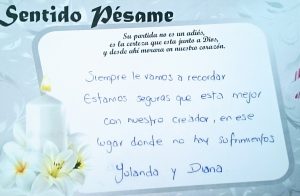 Sentido Pésame
Su partida no es un adiós,
es la certeza que esta junto a Dios,
y desde ahí morara en nuestro corazón.
Siempre le vamos a recordar
Estamos seguras que esta mejor
con nuestro creador, en ese
lugar donde no hay sufrimientos
Yolanda y Diana